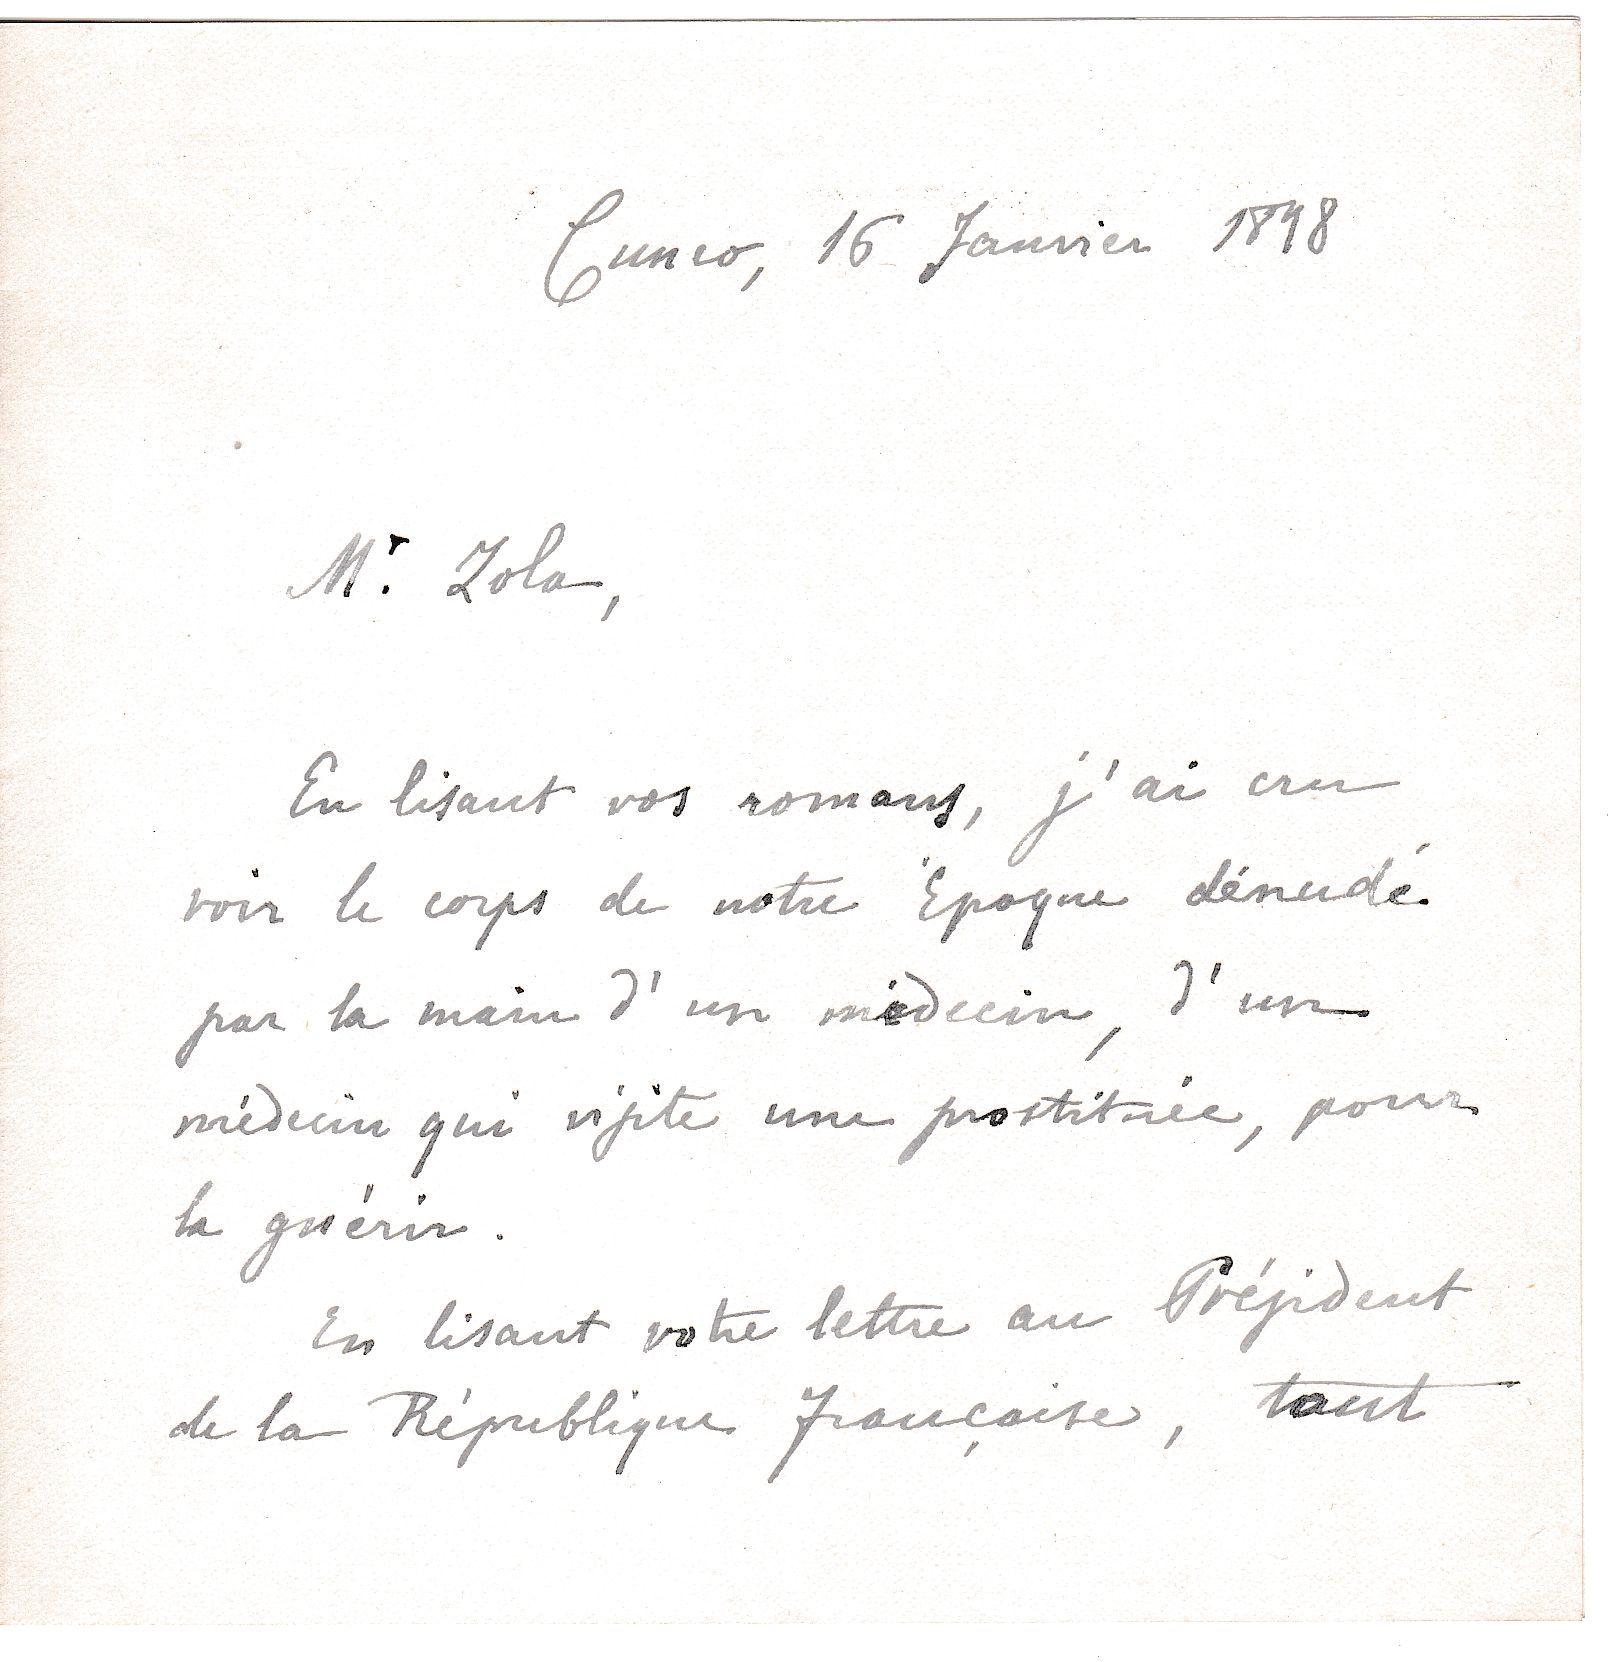 Cuneo, 16 Janvier 1898
Mr. Zola,
En lisant vos romans, j'ai cru
voir le corps de notre Epoque dénudé
par la main d'un médecin, d'un
médecin qui visite une prostituée, pour
la guérir.
En lisant votre lettre au Président
de la République française, tout